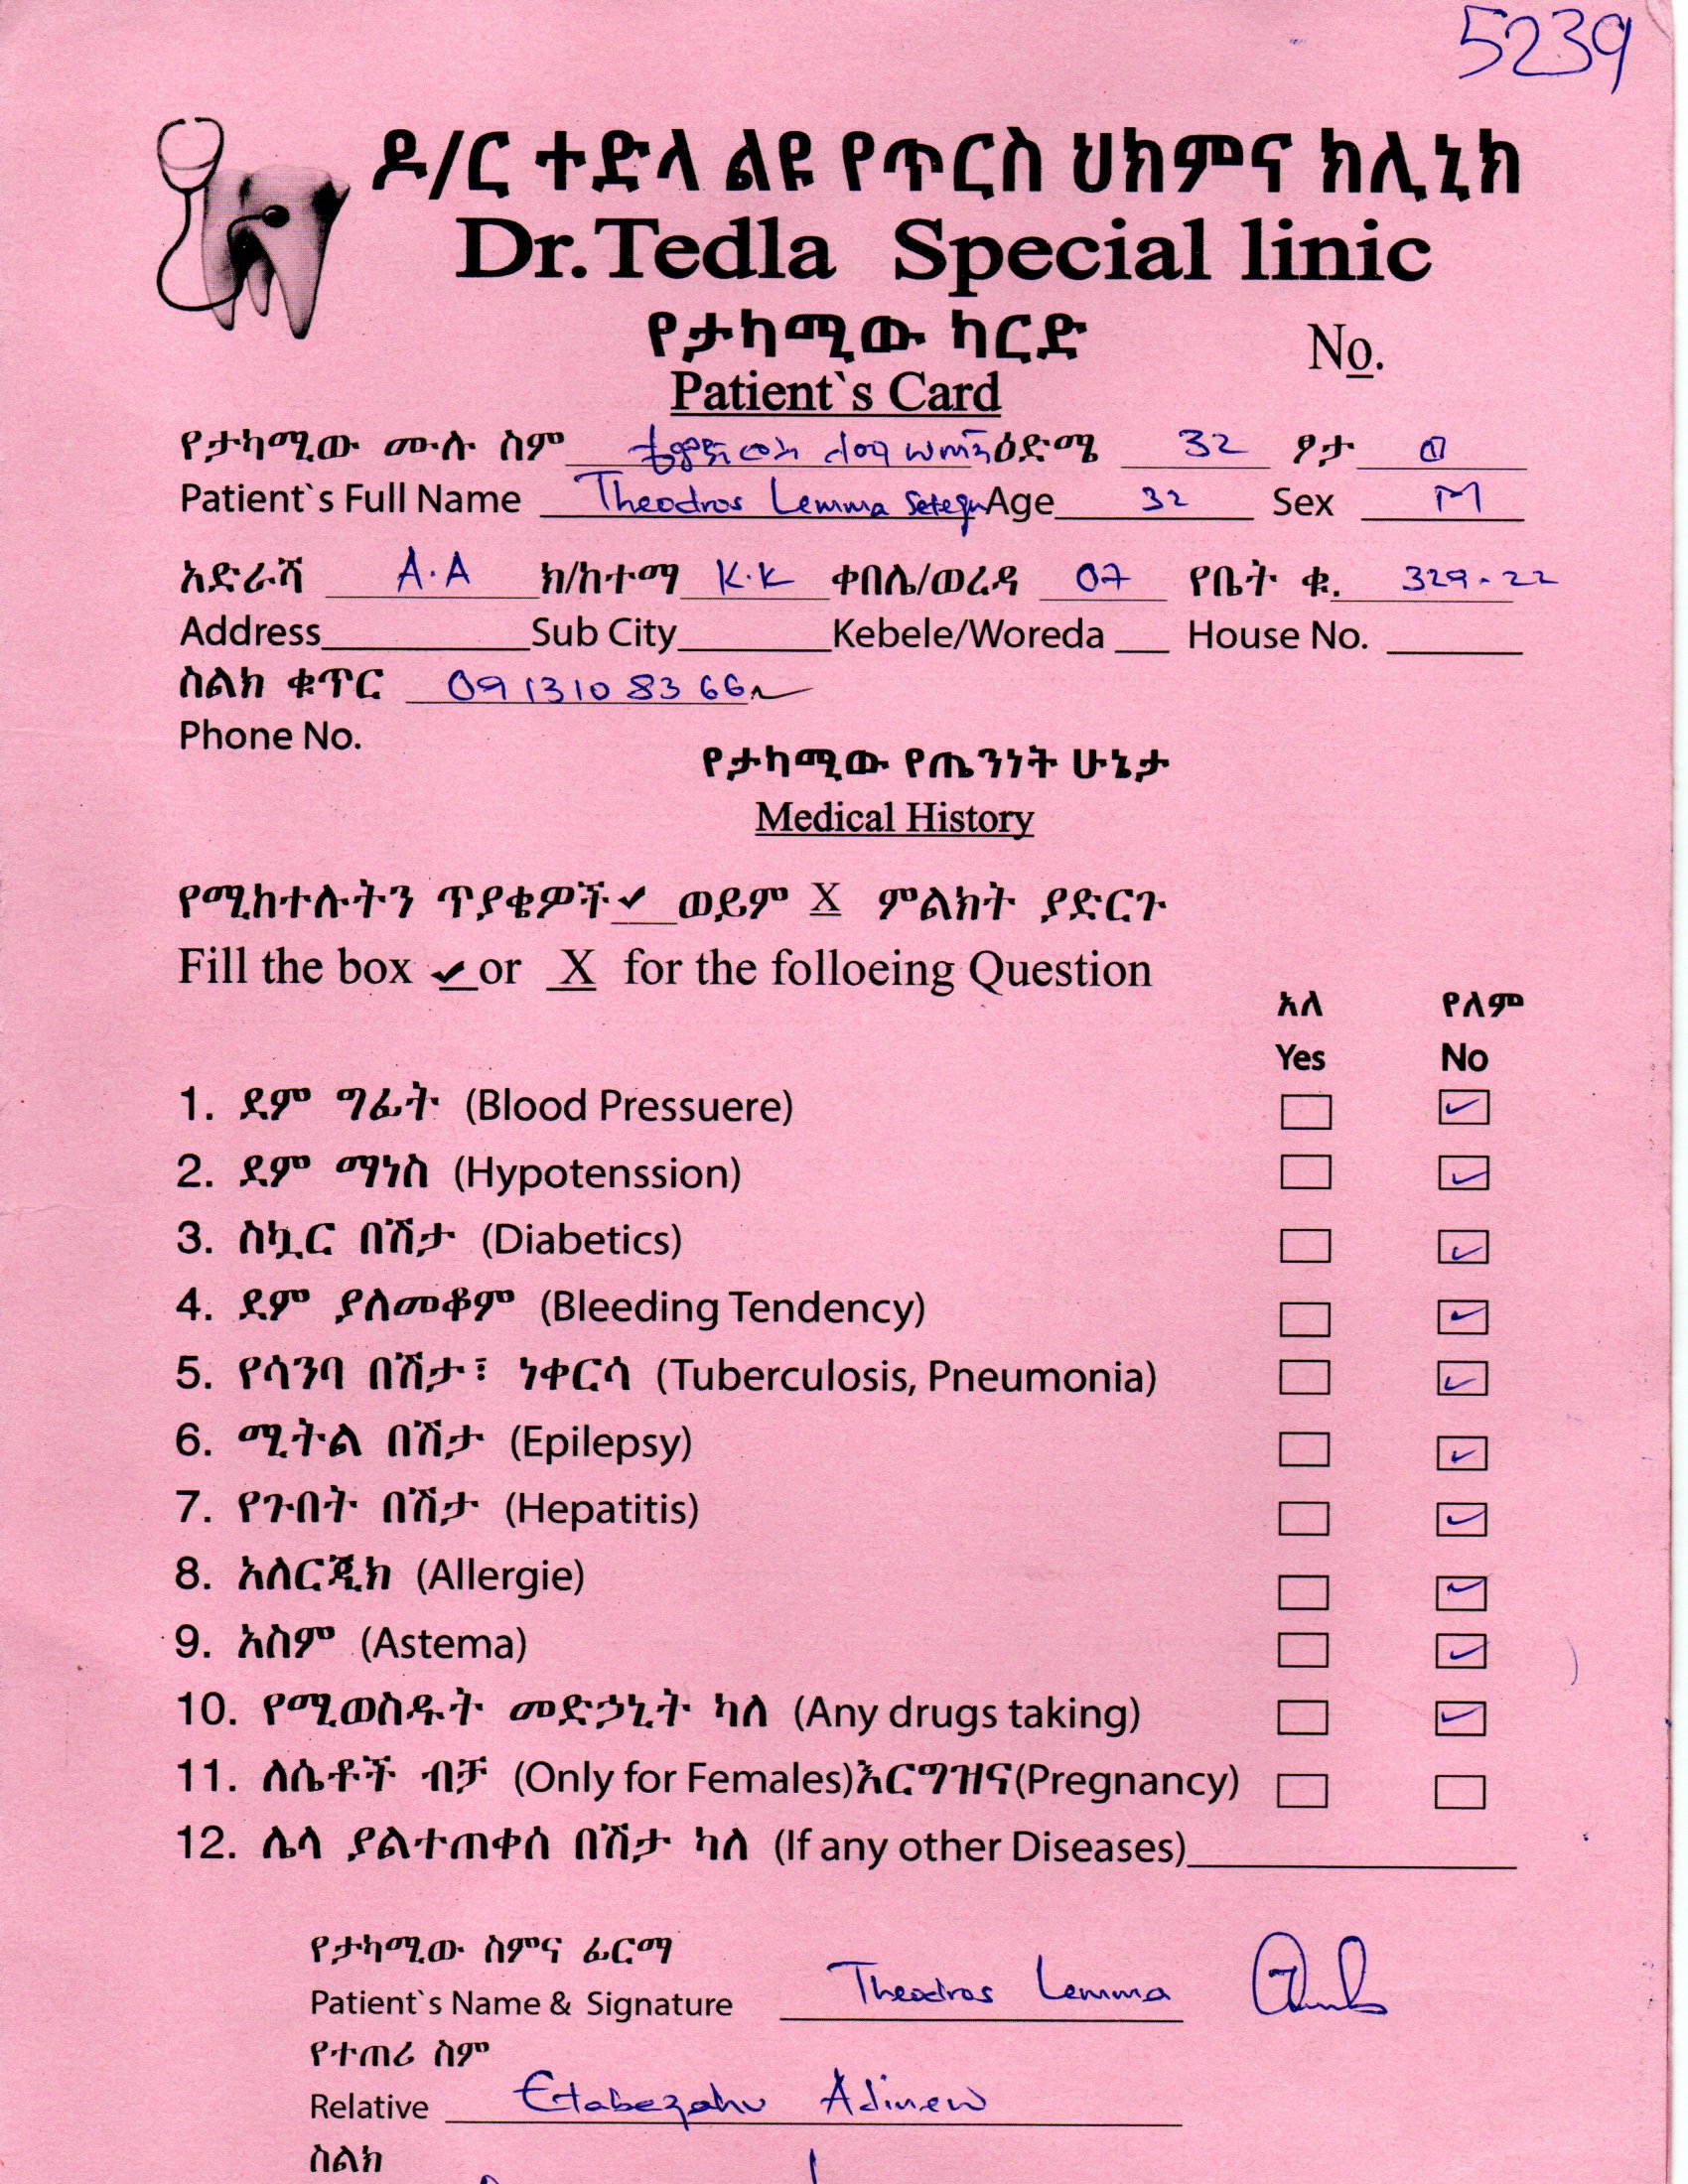 5239
ዶ/ር ተድላ ልዩ የጥርስ ህክምና ክሊኒክ
Dr.Tedla Special linic
የታካሚው ካርድ
No.
Patient`s Card
የታካሚው ሙሉ ስም ዕድሜ 32 ፆታ
Patient`s Full Name Theodros Lemma Setegn Age 32 Sex M
አድራሻ A.A ክ/ከተማ K.K ቀበሌ/ወረዳ 07 የቤት ቁ. 329-22
Address Sub City Kebele/Woreda House No.
ስልክ ቁጥር 0913108366
Phone No.
የታካሚው የጤንነት ሁኔታ
Medical History
የሚከተሉትን ጥያቄዎች ✓ ወይም X ምልክት ያድርጉ
Fill the box ✓ or X for the folloeing Question
አለ የለም
Yes No
1. ደም ግፊት (Blood Pressuere) ✓
2. ደም ማነስ (Hypotenssion) ✓
3. ስኳር በሽታ (Diabetics) ✓
4. ደም ያለመቆም (Bleeding Tendency) ✓
5. የሳንባ በሽታ፣ ነቀርሳ (Tuberculosis, Pneumonia) ✓
6. ሚትል በሽታ (Epilepsy) ✓
7. የጉበት በሽታ (Hepatitis) ✓
8. አለርጂክ (Allergie) ✓
9. አስም (Astema) ✓
10. የሚወስዱት መድኃኒት ካለ (Any drugs taking) ✓
11. ለሴቶች ብቻ (Only for Females)እርግዝና(Pregnancy)
12. ሌላ ያልተጠቀሰ በሽታ ካለ (If any other Diseases)
የታካሚው ስምና ፊርማ
Patient`s Name & Signature Theodros Lemma
የተጠሪ ስም
Relative Etabezahu Adinew
ስልክ